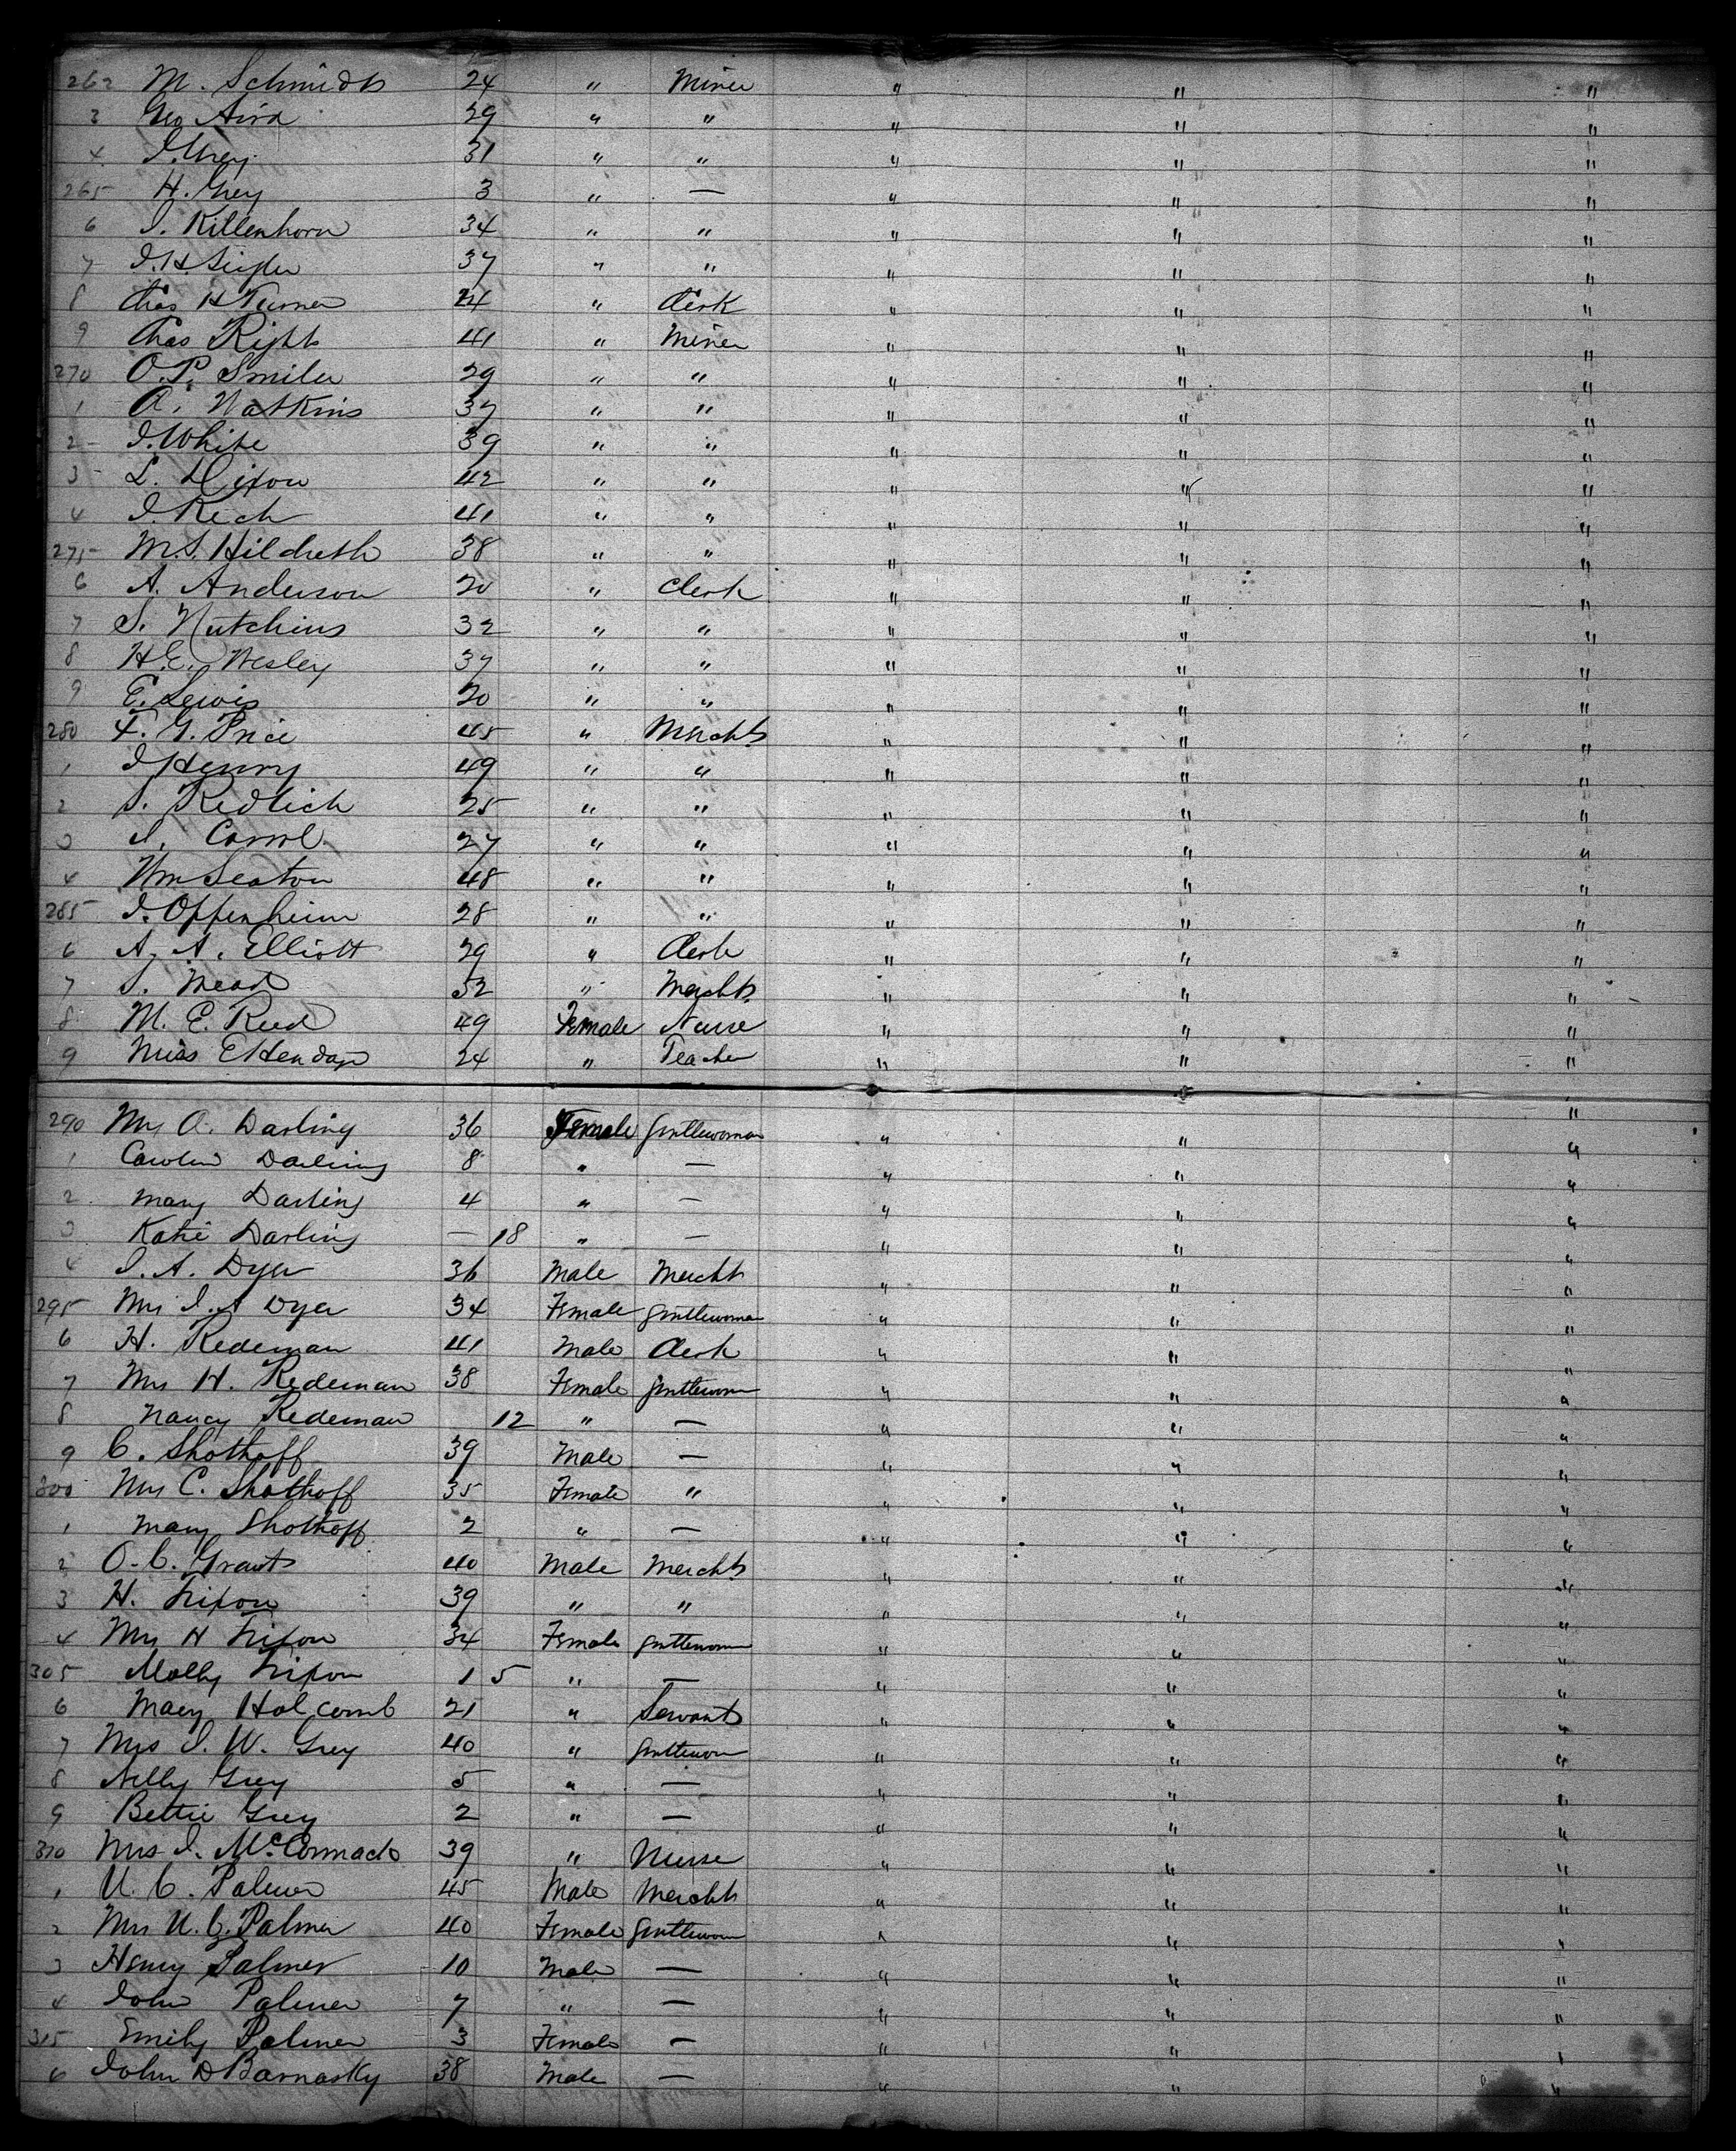 262 M. Schmidt 24 " Miner " " "
3 Geo Aird 29 " " " " "
4 J. Grey 31 " " " " "
265 H. Grey 3 " — " " "
6 J. Killenhorn 34 " " " " "
7 J. H. 37 " " " " "
8 Chas H Turner 24 " Clerk " " "
9 Chas Right 41 " Miner " " "
270 O. P. Smiler 29 " " " " "
1 A. Watkins 37 " " " " "
2 J. White 39 " " " " "
3 L. Dixon 42 " " " " "
4 J. Rich 41 " " " " "
275 M. S. Hildreth 38 " " " " "
6 A. Anderson 20 " Clerk " " "
7 S. Hutchins 32 " " " " "
8 H. E. Wesley 37 " " " " "
9 E. Lewis 20 " " " " "
280 F. G. Price 45 " Mercht " " "
1 J Henry 49 " " " " "
2 S. Redlich 25 " " " " "
3 J. Carrol 27 " " " " "
4 Wm Seaton 48 " " " " "
285 J. Oppenheim 28 " " " " "
6 A. A. Elliott 29 " Clerk " " "
7 S. Mead 32 " Mercht " " "
8 M. E. Reed 49 Female Nurse " " "
9 Miss E 24 " Teacher " " "
290 Mrs A. Darling 36 Female Gentlewoman " " "
1 Carolin Darling 8 " — " " "
2 Mary Darling 4 " — " " "
3 Katie Darling — 18 " — " " "
4 J. A. Dyer 36 Male Mercht " " "
295 Mrs J. A Dyer 34 Female Gentlewoman " " "
6 H. Redeman 41 Male Clerk " " "
7 Mrs H. Redeman 38 Female Gentlewom " " "
8 Nancy Redeman 12 " — " " "
9 C. Shothoff 39 Male — " " "
300 Mrs C. Shothoff 35 Female " " " "
1 Mary Shothoff 2 " — " " "
2 O. C. Grant 40 Male Mercht " " "
3 H. Nixon 39 " " " " "
4 Mrs H Nixon 34 Female Gentlewom " " "
305 Molly Nixon 1 5 " — " " "
6 Mary Holcomb 21 " Servant " " "
7 Mrs J. W. Grey 40 " Gentlewom " " "
8 Nelly Grey 5 " — " " "
9 Bettie Grey 2 " — " " "
310 Mrs J. McCormack 39 " Nurse " " "
1 U. C. Palmer 45 Male Mercht " " "
2 Mrs U. C. Palmer 40 Female Gentlewom " " "
3 Henry Palmer 10 Male — " " "
4 John Palmer 7 " — " " "
315 Emily Palmer 3 Female — " " "
6 John D Barnasky 38 Male — " " "